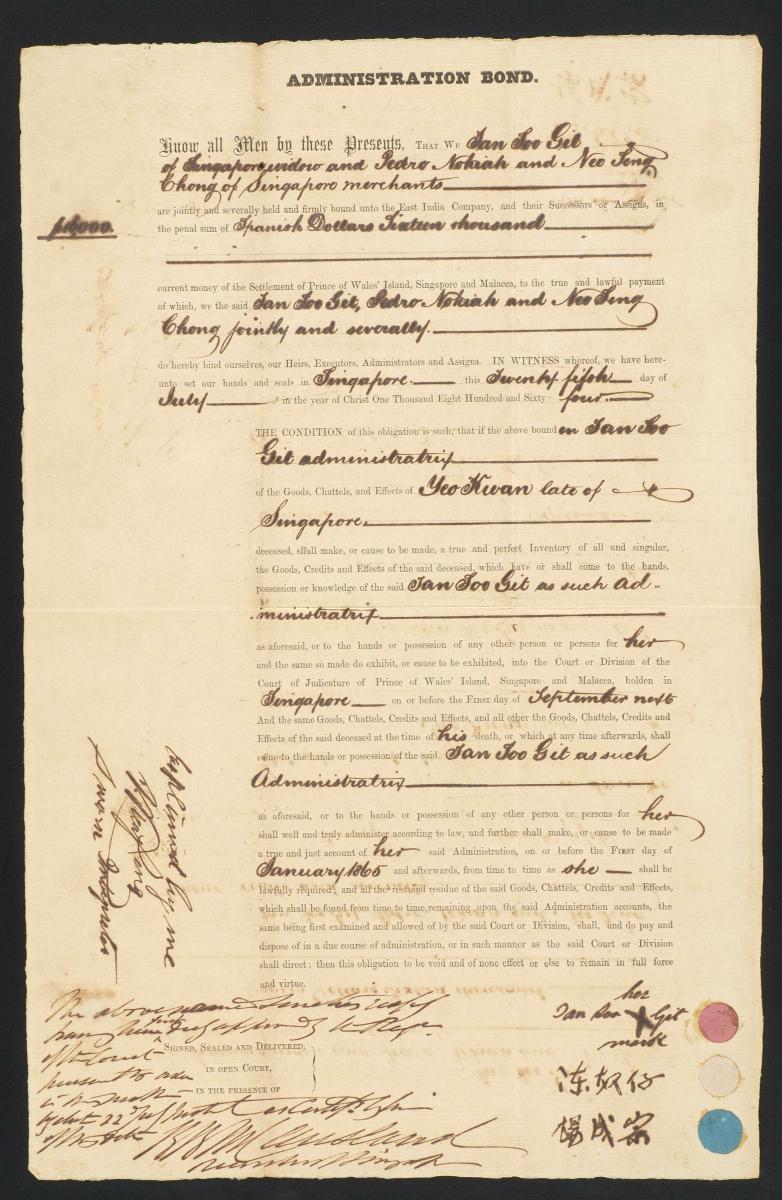 ADMINISTRATION BOND.
Know all Men by these Presents, THAT WE Tan Soo Git
of Singapore widow and Pedro Nokiah and Neo Seng
Chong of Singapore merchants
are jointly and severally held and firmly bound unto the East India Company, and their Successors or Assigns, in
$16,000. the penal sum of Spanish Dollars Sixteen thousand
current money of the Settlement of Prince of Wales' Island, Singapore and Malacca, to the true and lawful payment
of which, we the said Tan Soo Git, Pedro Nokiah and Neo Seng
Chong jointly and severally.
do hereby bind ourselves, our Heirs, Executors, Administrators and Assigns. IN WITNESS whereof, we have here-
unto set our hands and seals in Singapore. this Twenty fifth day of
July in the year of Christ One Thousand Eight Hundred and Sixty four.
THE CONDITION of this obligation is such, that if the above bounden Tan Soo
Git administratrix
of the Goods, Chattels, and Effects of Yeo Kwan late of
Singapore.
deceased, shall make, or cause to be made, a true and perfect Inventory of all and singular,
the Goods, Credits and Effects of the said deceased, which have or shall come to the hands,
possession or knowledge of the said Tan Soo Git as such ad-
ministratrix
as aforesaid, or to the hands or possession of any other person or persons for her
and the same so made do exhibit, or cause to be exhibited, into the Court or Division of the
Court of Judicature of Prince of Wales' Island, Singapore and Malacca, holden in
Singapore on or before the FIRST day of September next
And the same Goods, Chattels, Credits and Effects, and all other the Goods, Chattels, Credits and
Effects of the said deceased at the time of his death, or which at any time afterwards, shall
come to the hands or possession of the said Tan Soo Git as such
Administratrix
as aforesaid, or to the hands or possession of any other person or persons for her
shall well and truly administer according to law, and further shall make, or cause to be made
a true and just account of her said Administration, on or before the FIRST day of
January 1865 and afterwards, from time to time as she shall be
lawfully required; and all the rest and residue of the said Goods, Chattels, Credits and Effects,
which shall be found from time to time, remaining upon the said Administration accounts, the
same being first examined and allowed of by the said Court or Division, shall, and do pay and
dispose of in a due course of administration, or in such manner as the said Court or Division
shall direct: then this obligation to be void and of none effect or else to remain in full force
and virtue.
Explained by me
Sworn Interpreter
The above
of the Court
SIGNED, SEALED AND DELIVERED,
IN OPEN COURT,
IN THE PRESENCE OF
her
Tan Soo X Git
mark
楊成宗